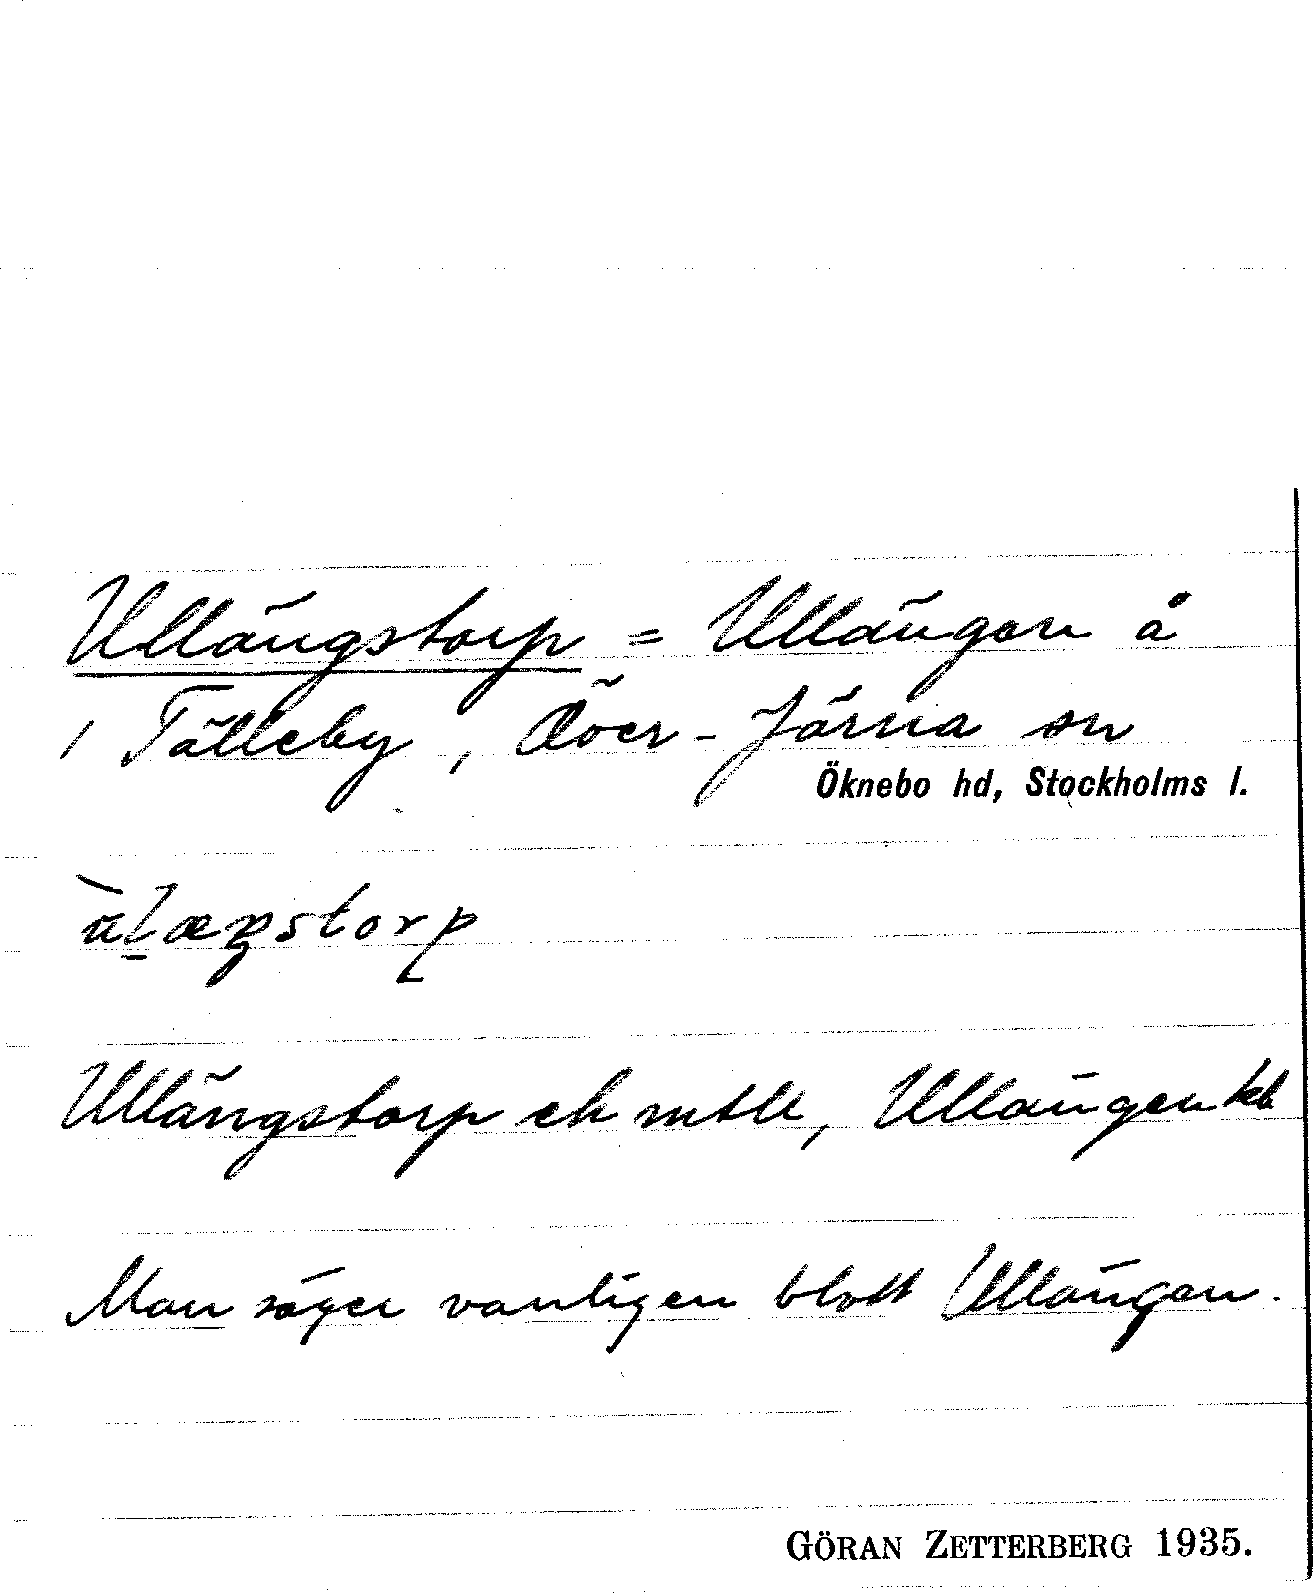 Ullängstorp = Ullängen å
1 Tälleby, Över-Järna sn
Öknebo hd, Stockholms l.
ùlæŋstorp
Ullängstorp ek mtll, Ullängen kb
Man säger vanligen blott Ullängen.
GÖRAN ZETTERBERG 1935.